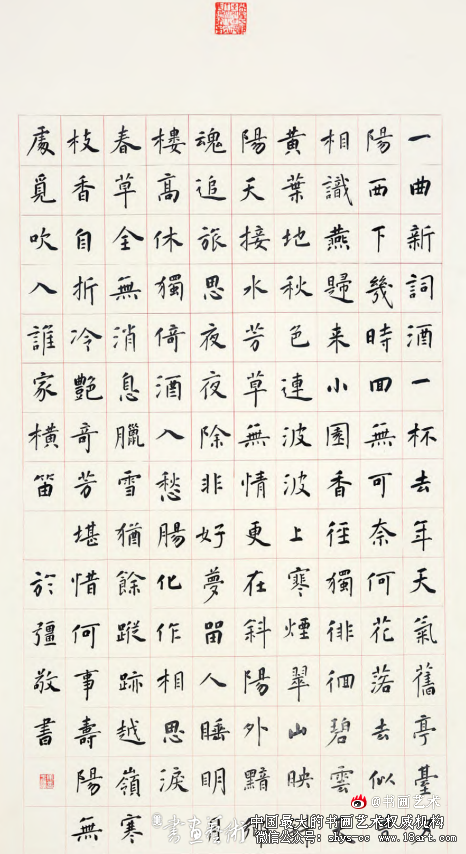 一曲新詞酒一杯去年天氣舊亭臺夕
陽西下幾時回無可奈何花落去似曾
相識燕歸来小園香徑獨徘徊碧雲天
黃葉地秋色連波波上寒煙翠山映斜
陽天接水芳草無情更在斜陽外黯鄉
魂追旅思夜夜除非好夢留人睡明月
樓高休獨倚酒入愁腸化作相思淚
春草全無消息臘雪猶餘蹤跡越嶺寒
枝香自折冷艷奇芳堪惜何事壽陽無
處覓吹入誰家橫笛 於彊敬書
@书画艺术
中国最大的书画艺术权威机构